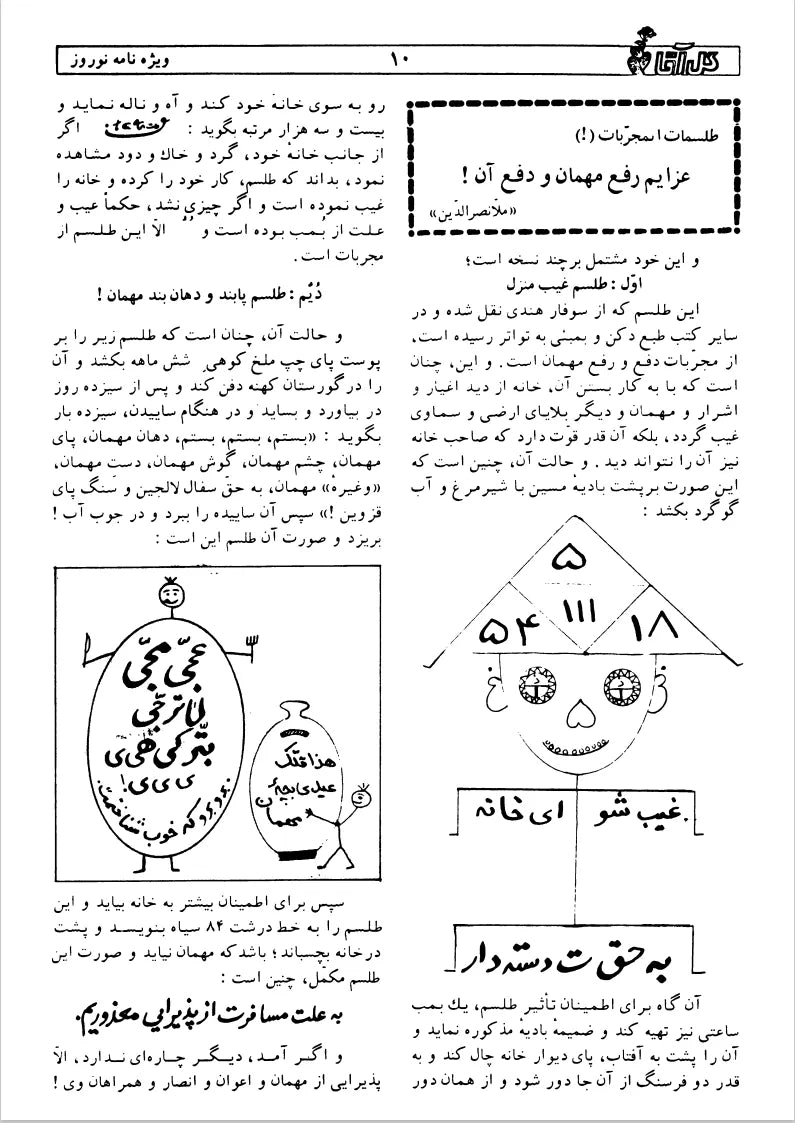 گل آقا
۱۰
ویژه نامه نوروز
طلسمات المجرّبات (!)
عزایم رفع مهمان و دفع آن !
«ملانصرالدّین»
و این خود مشتمل بر چند نسخه است؛
اوّل : طلسم غیب منزل
این طلسم که از سوفار هندی نقل شده و در
سایر کتب طبع دکن و بمبئی به تواتر رسیده است،
از مجرّبات دفع و رفع مهمان است. و این، چنان
است که با به کار بستن آن، خانه از دید اغیار و
اشرار و مهمان و دیگر بلایای ارضی و سماوی
غیب گردد، بلکه آن قدر قوّت دارد که صاحب خانه
نیز آن را نتواند دید. و حالت آن، چنین است که
این صورت بر پشت بادیهٔ مسین با شیر مرغ و آب
گوگرد بکشد :
۵
۵۴ ۱۱۱ ۱۸
ای خانه غیب شو.
به حق ت دسته دار
آن گاه برای اطمینان تأثیر طلسم، یك بمب
ساعتی نیز تهیه کند و ضمیمهٔ بادیهٔ مذکوره نماید و
آن را پشت به آفتاب، پای دیوار خانه چال کند و به
قدر دو فرسنگ از آن جا دور شود و از همان دور
رو به سوی خانهٔ خود کند و آه و ناله نماید و
بیست و سه هزار مرتبه بگوید : اگر
از جانب خانهٔ خود، گرد و خاك و دود مشاهده
نمود، بداند که طلسم، کار خود را کرده و خانه را
غیب نموده است و اگر چیزی نشد، حکماً عیب و
علت از بمب بوده است و الّا این طلسم از
مجربات است.
دُیُّم : طلسم پابند و دهان بند مهمان !
و حالت آن، چنان است که طلسم زیر را بر
پوست پای چپ ملخ کوهی شش ماهه بکشد و آن
را در گورستان کهنه دفن کند و پس از سیزده روز
در بیاورد و بساید و در هنگام ساییدن، سیزده بار
بگوید : «بستم، بستم، بستم، دهان مهمان، پای
مهمان، چشم مهمان، گوش مهمان، دست مهمان،
«وغیرهٔ» مهمان، به حقّ سفال لالجین و سنگ پای
قزوین !» سپس آن ساییده را ببرد و در جوب آب !
بریزد و صورت آن طلسم این است :
عجّی مجّی
لاترجّی
بترکی هی ی
ی ی ی!
برو برو که خوب شناختمت.
هذا قلّک
عیدی بچهٔ
مهمان
سپس برای اطمینان بیشتر به خانه بیاید و این
طلسم را به خط درشت ۸۴ سیاه بنویسد و پشت
در خانه بچسباند؛ باشد که مهمان نیاید و صورت این
طلسم مکمّل، چنین است :
به علت مسافرت از پذیرایی معذوریم.
و اگر آمد، دیگر چاره‌ای ندارد، الّا
پذیرایی از مهمان و اعوان و انصار و همراهان وی !